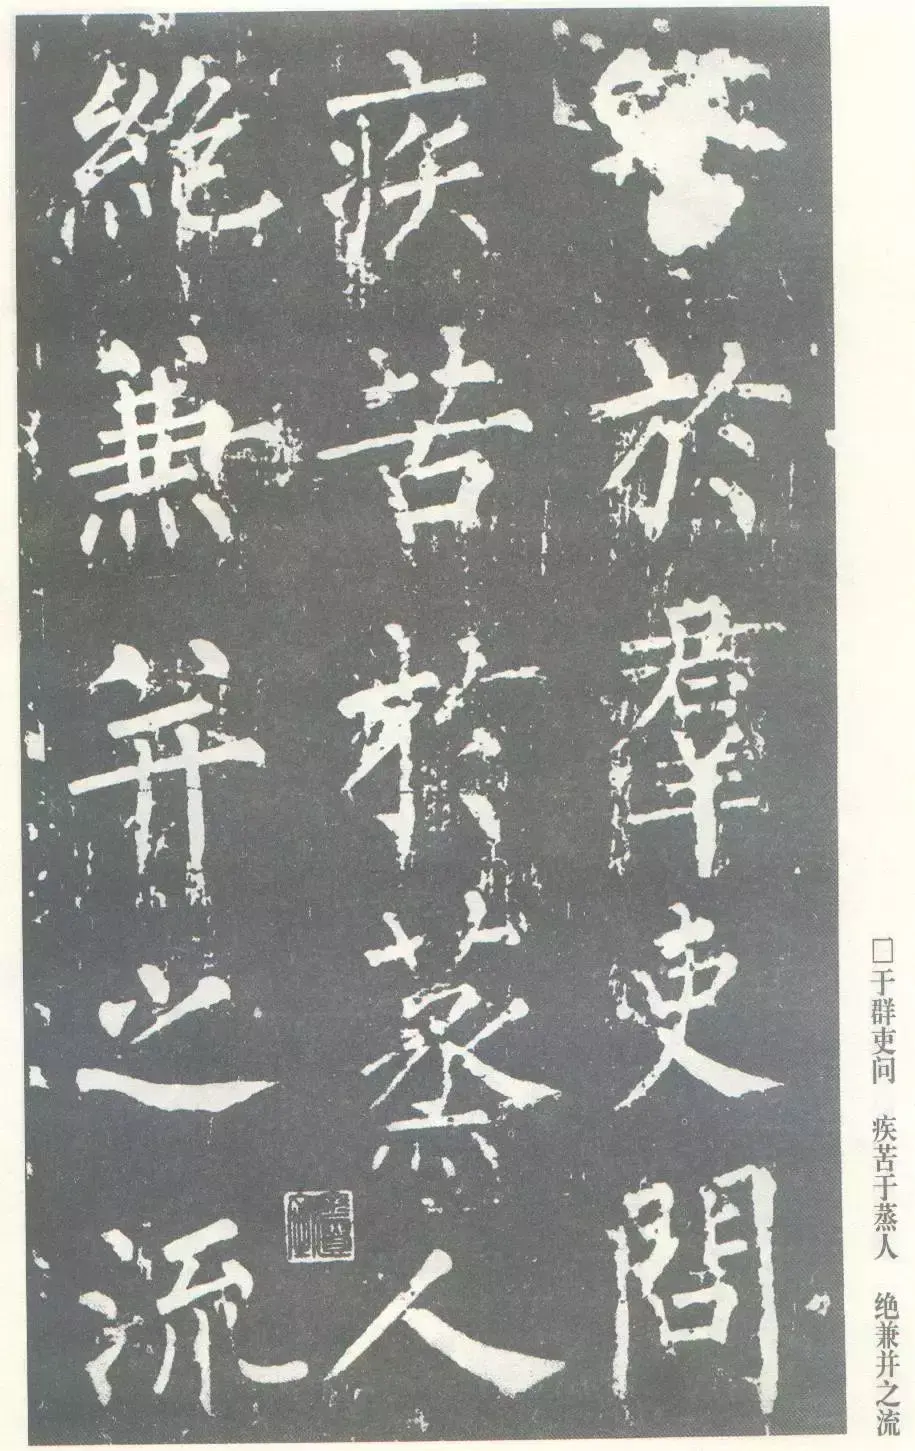 於群吏問
疾苦於蒸人
絶兼并之流
□于群吏问 疾苦于蒸人 绝兼并之流